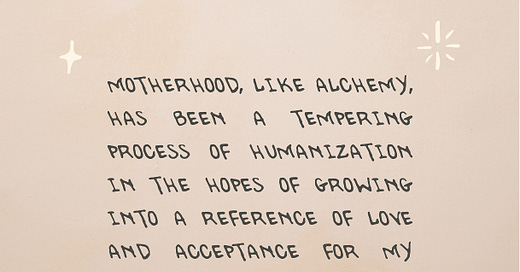 MOTHERHOOD, LIKE ALCHEMY,
HAS BEEN A TEMPERING
PROCESS OF HUMANIZATION
IN THE HOPES OF GROWING
INTO A REFERENCE OF LOVE
AND ACCEPTANCE FOR MY